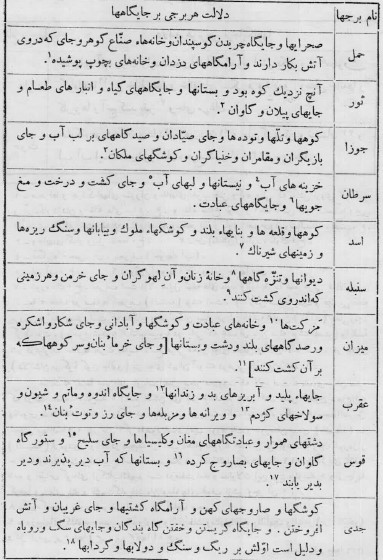 نام برجها
دلالت هر برجی بر جایگاهها
حمل
صحرایها و جایگاه چریدن گوسپندان وخانه‌ها، صنّاع گوهر وجای که دروی
آتش بکار دارند و آرامگاههای دزدان وخانه‌های بچوب پوشیده۱.
ثور
آنچ نزدیک کوه بود و بستانها و جایگاههای گیاه و انبار های طعام و
جایهای پیلان و گاوان ۲.
جوزا
کوهها وتلّها وتوده‌ها و جای صیّادان و صیدگاههای بر لب آب و جای
بازیگران ومقامران وخنیاگران و کوشکهای ملکان۳.
سرطان
خزینه های آب۴ و نیستانها و لبهای آب۵ وجای کشت و درخت و مغ
جویها۶ وجایگاههای عبادت .
اسد
کوهها وقلعه ها و بناهاء بلند و کوشکهاء ملوك وبیابانها وسنگ ریزه‌ها
و زمینهای شیرناك ۷
سنبله
دیوانها وتنزّه گاهها۸ وخانهٔ زنان و آن لهوگران و جای خرمن وهرزمینی
که‌اندروی کشت کنند۹.
میزان
مزکت‌ها۱۰ وخانه‌های عبادت و کوشکها و آبادانی وجای شکار واشکره
ورصدگاههای بلند ودشت وبستانها [وجای خرما بنان وسر کوهها که
بر آن کشت کنند]۱۱.
عقرب
جایهاء پلید و آبریزهای بد و زندانها۱۲ و جایگاه اندوه وماتم و شیون و
سولاخهای کژدم۱۳ و ویرانه ها ومزبله‌ها و جای رز و توت بنان۱۴.
قوس
دشتهای هموار وعبادتگاههای مغان وکلیسیاها و جای سلیح۱۵ و ستورگاه
گاوان و جایهای بصاروج کرده ۱۶ و بستانها که آب دیر پذیرند ودیر
بدیر یابند ۱۷.
جدی
کوشکها و صاروجهای کهن و آرامگاه کشتیها و جای غریبان و آتش
افروختن . و جایگاه گریستن وخفتن گاه بندگان وجایهای سگ وروباه
ودلیل است اوّلش بر ریگ و سنگ و دولابها وگردابها۱۸.